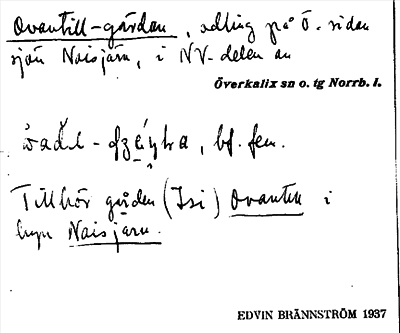 Ovantill-gärdan, odling på Ö. sidan
sjön Naisjärv, i NV-delen av
Överkalix sn o. tg Norrb. l.
bf. fem.
Tillhör gården (Isi) Ovantill i
byn Naisjärv.
EDVIN BRÄNNSTRÖM 1937